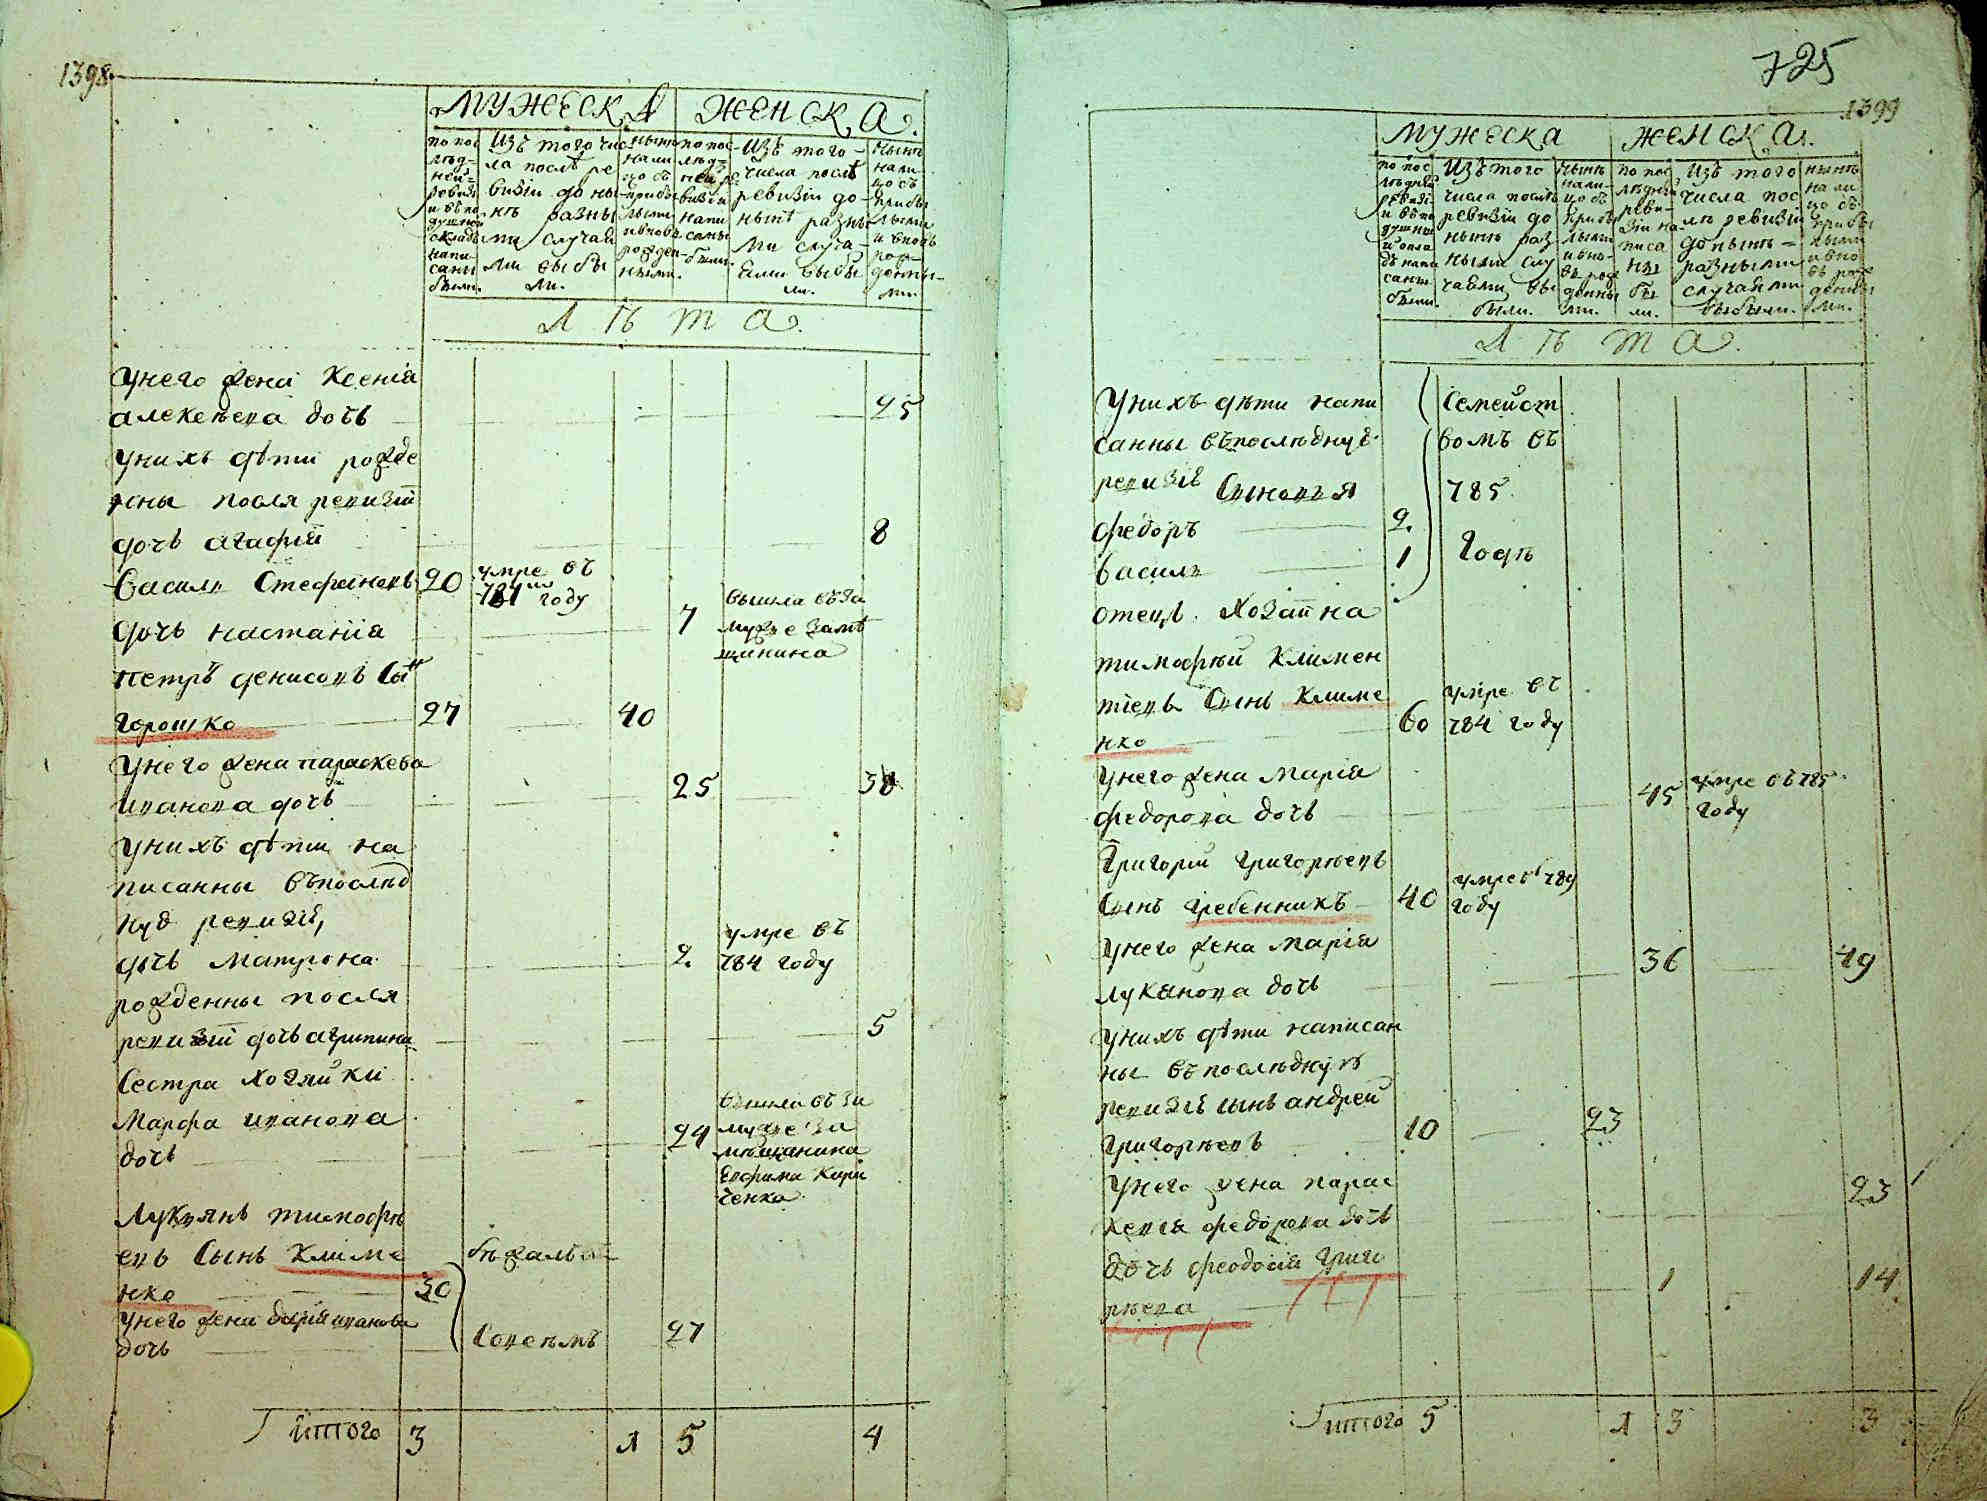 1398
МУЖЕСКА ЖЕНСКА.
по пос
лѣд-
ней-
ревизи
и въ по
душном
окладѣ
напи-
саны
были.
Изъ того чис
ла послѣ ре
визіи до ны-
нѣ разны
ми случаи
ми выбы
ли.
нынѣ
нали
цо съ
прибы
лыми
и вновь
рожден-
ными.
по пос-
лѣд-
ней ре
визіи
напи
саны
были.
Изъ того-
числа послѣ
ревизіи до-
нынѣ разны
ми случа-
ями выбы
ли.
нынѣ
нали
цо съ
прибы
лыми
и вновь
рож-
денны-
ми.
Лѣта.
Унего жена Ксенія
алексѣева дочь 45
Унихъ дѣти рожде
нны посля ревизіи
дочь агафія 8
Василь Стефановъ 20 умре въ
году
дочь настасіа 7 вышла въ за
мужъе за мѣ
щинина
Петръ денисовъ Сынъ
Горошко 27 40
Унего жена параскева
иванова дочь 25 38
Унихъ дѣти на
писанны въ послѣд
нуѣ ревизіѣ
дочь Матрона 2. умре въ
784 году
рожденны посля
ревизіи дочь агрипина 5
Сестра хозяйки
Марфа иванова
дочь 24 вышла въ за
мужъе за
мѣщанина
Евфима Кири
ченка
Лукянъ тимофѣ
евъ Сынъ Климе
нко 30 бѣжалъ
Унего жена дарія иванова
дочь 27 Совсѣмъ
Итого 3 1 5 4
725
1399
МУЖЕСКА ЖЕНСКА.
по пос
лѣдней
ревизі-
и въ по
душном
и окла
дѣ напи
саны
были.
Изъ того
числа послѣ
ревизіи до
нынѣ раз
ными слу
чаями вы
были.
нынѣ
нали-
цо съ
прибы
лыми
и вно-
вь рож
денны
ми.
по пос
лѣдней
реви-
зіи на
писа
ны
бы
ли.
Изъ того
числа пос
лѣ ревизіи
до нынѣ-
разными
случаями
выбыли.
нынѣ
на ли
цо съ
прибы
лыми
и вно
вь рож
денны
ми.
Лѣта.
Унихъ дѣти напи
санны въ послѣднуѣ
ревизіѣ Сыновья
Федоръ 2.
Василь 1
Семейст
вомъ въ
785
Годѣ
отецъ Хозаина
тимофѣй Климен
тіевъ Сынъ Климе
нко 60 умре въ
784 году
Унего жена Маріа
федорова дочь 45 умре въ 785
году
Григорій григорьевъ
Сынъ гребенникъ 40 умре въ 789
году
Унего жена Маріа
луканова дочь 36 49
Унихъ дѣти написан
ны въ послѣднуѣ
ревизіѣ сынъ андрей
григорьевъ 10 23
Унего жена парас
кевиа федорова дочь 23
дочь феодосіа Григо
рьева 1 14
Итого 5 1 3 3